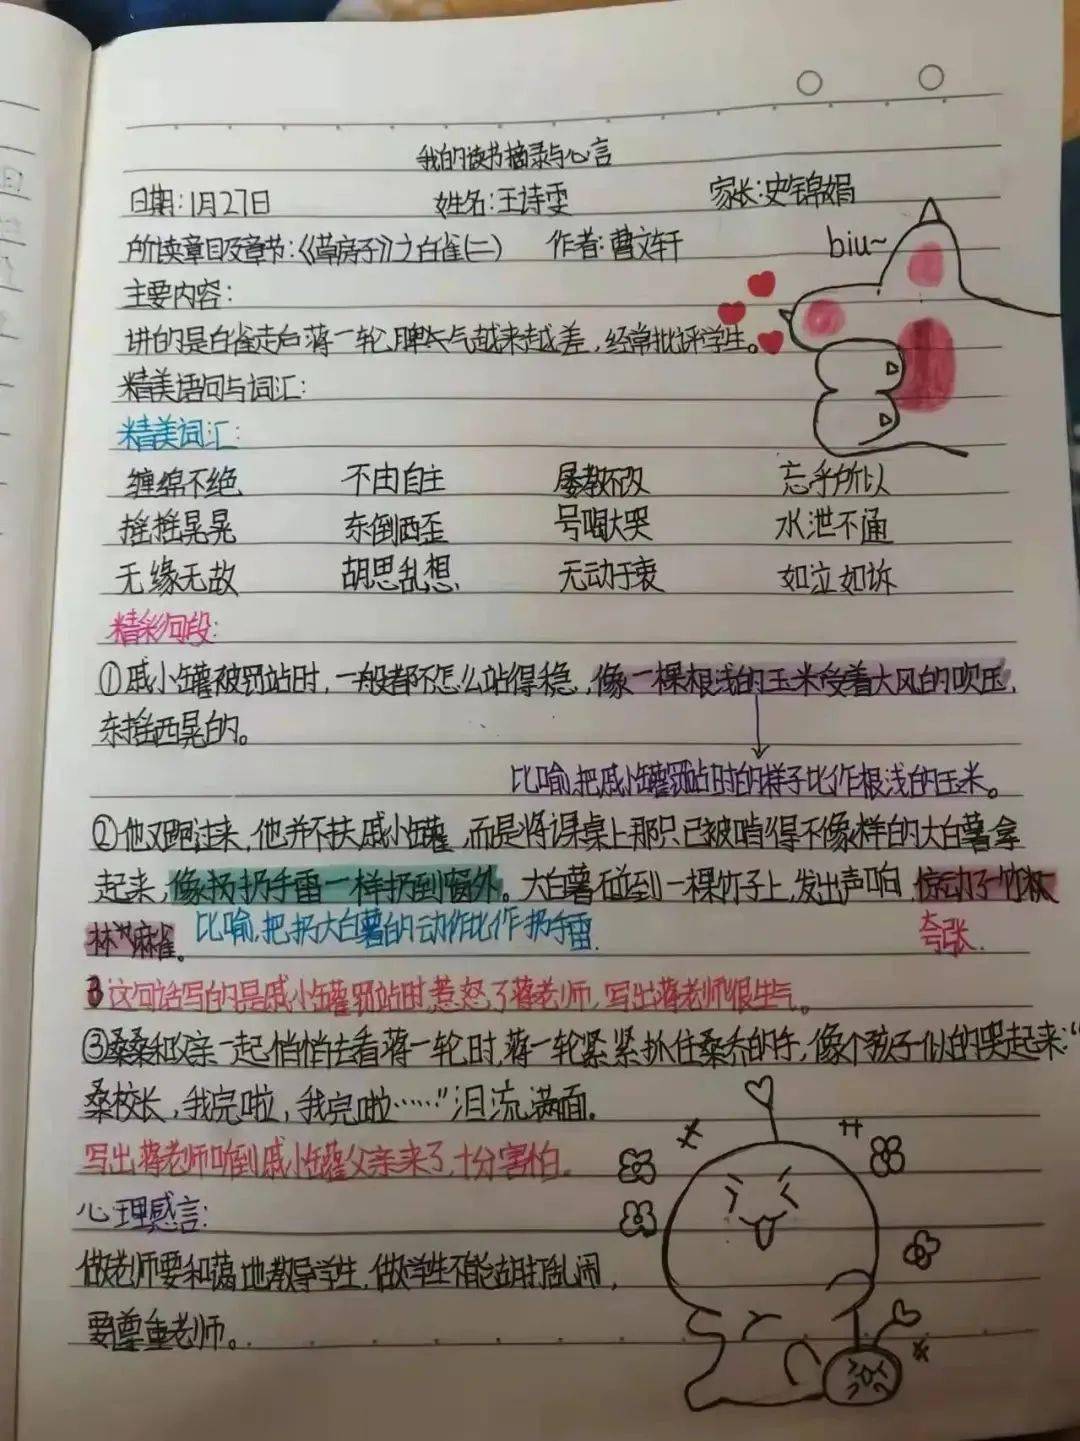 我的读书摘录与心言
日期:1月27日 姓名:王诗雯 家长:史锦娟
所读章目及章节:《草房子》之白雀(二) 作者:曹文轩
biu~
主要内容:
讲的是白雀走后蒋一轮脾气越来越差,经常批评学生。
精美语句与词汇:
精美词汇:
缠绵不绝 不由自主 屡教不改 忘乎所以
摇摇晃晃 东倒西歪 号啕大哭 水泄不通
无缘无故 胡思乱想 无动于衷 如泣如诉
精彩句段:
①戚小罐被罚站时,一般都不怎么站得稳,像一棵根浅的玉米受着大风的吹压,
东摇西晃的。
比喻,把戚小罐罚站时的样子比作根浅的玉米。
②他又跑过来,他并不扶戚小罐,而是将课桌上那只已被啃得不像样的大白薯拿
起来,像扔手雷一样扔到窗外。大白薯砸到一棵竹子上,发出声响,惊动了竹
林 麻雀。 比喻,把扔大白薯的动作比作扔手雷. 夸张.
这句话写的是戚小罐罚站时,惹怒了蒋老师,写出蒋老师很生气。
③桑桑和父亲一起悄悄去看蒋一轮时,蒋一轮紧紧抓住桑乔的手,像个孩子似的哭起来:“
桑校长,我完啦,我完啦……”泪流满面.
写出蒋老师听到戚小罐父亲来了,十分害怕.
心理感言:
做老师要和蔼地教导学生.做学生不能胡打乱闹,
要尊重老师。